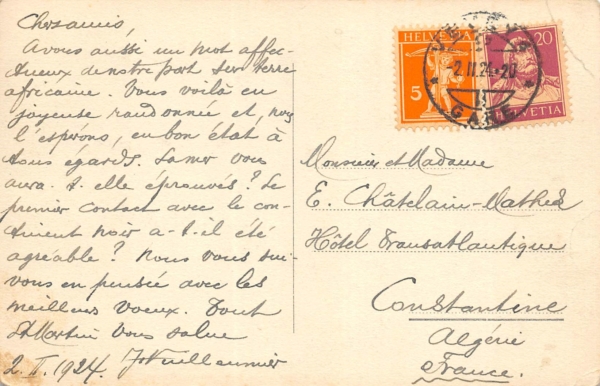 Chers amis,
A vous aussi un mot affec-
tueux de notre part sur terre
africaine. Vous voilà en
joyeuse randonnée et, nous
l'espérons, en bon état à
tous égards. La mer vous
aura-t-elle éprouvés? Le
premier contact avec le con-
tinent noir a-t-il été
agréable? Nous vous sui-
vons en pensée avec les
meilleurs voeux. Tout
St Martin vous salue
2. II. 1924. J Vuilleumier
HELVETIA
5
20
HELVETIA
2.II.24.-20
GARE
Monsieur et Madame
E. Châtelain-Mathez
Hôtel Transatlantique
Constantine
Algérie
France.